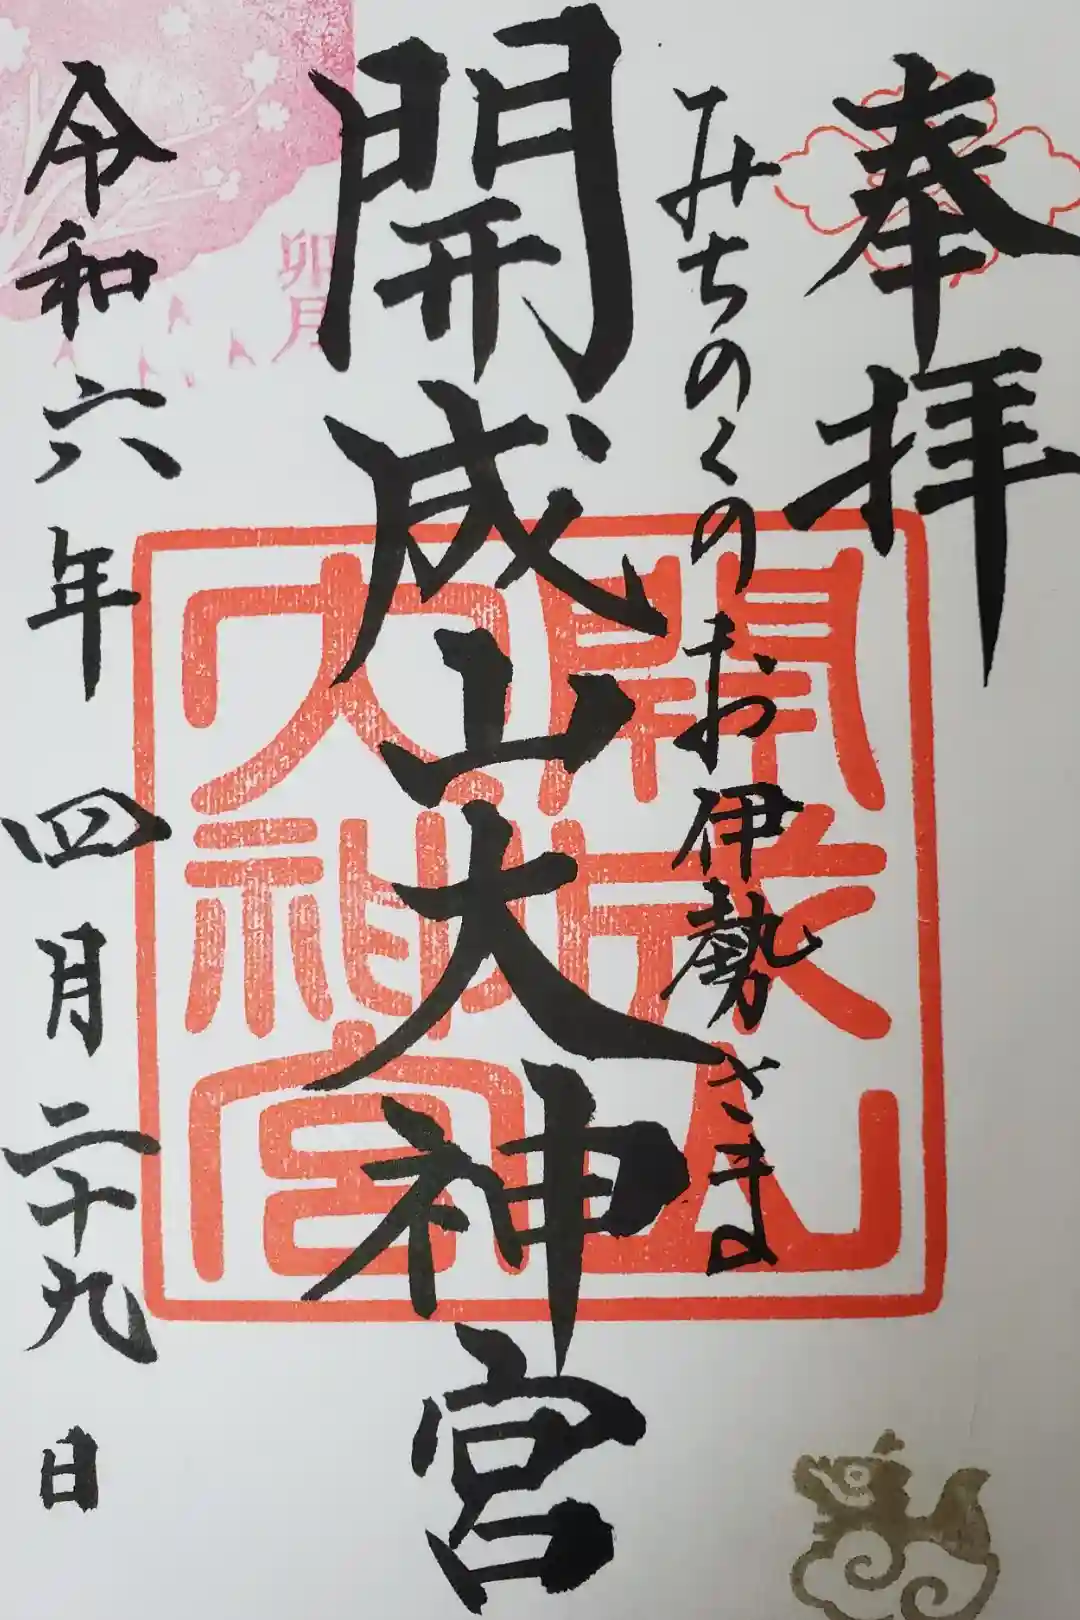 奉拝
みちのくのお伊勢さま
開成山大神宮
令和六年四月二十九日
開成山
大神宮
卯月